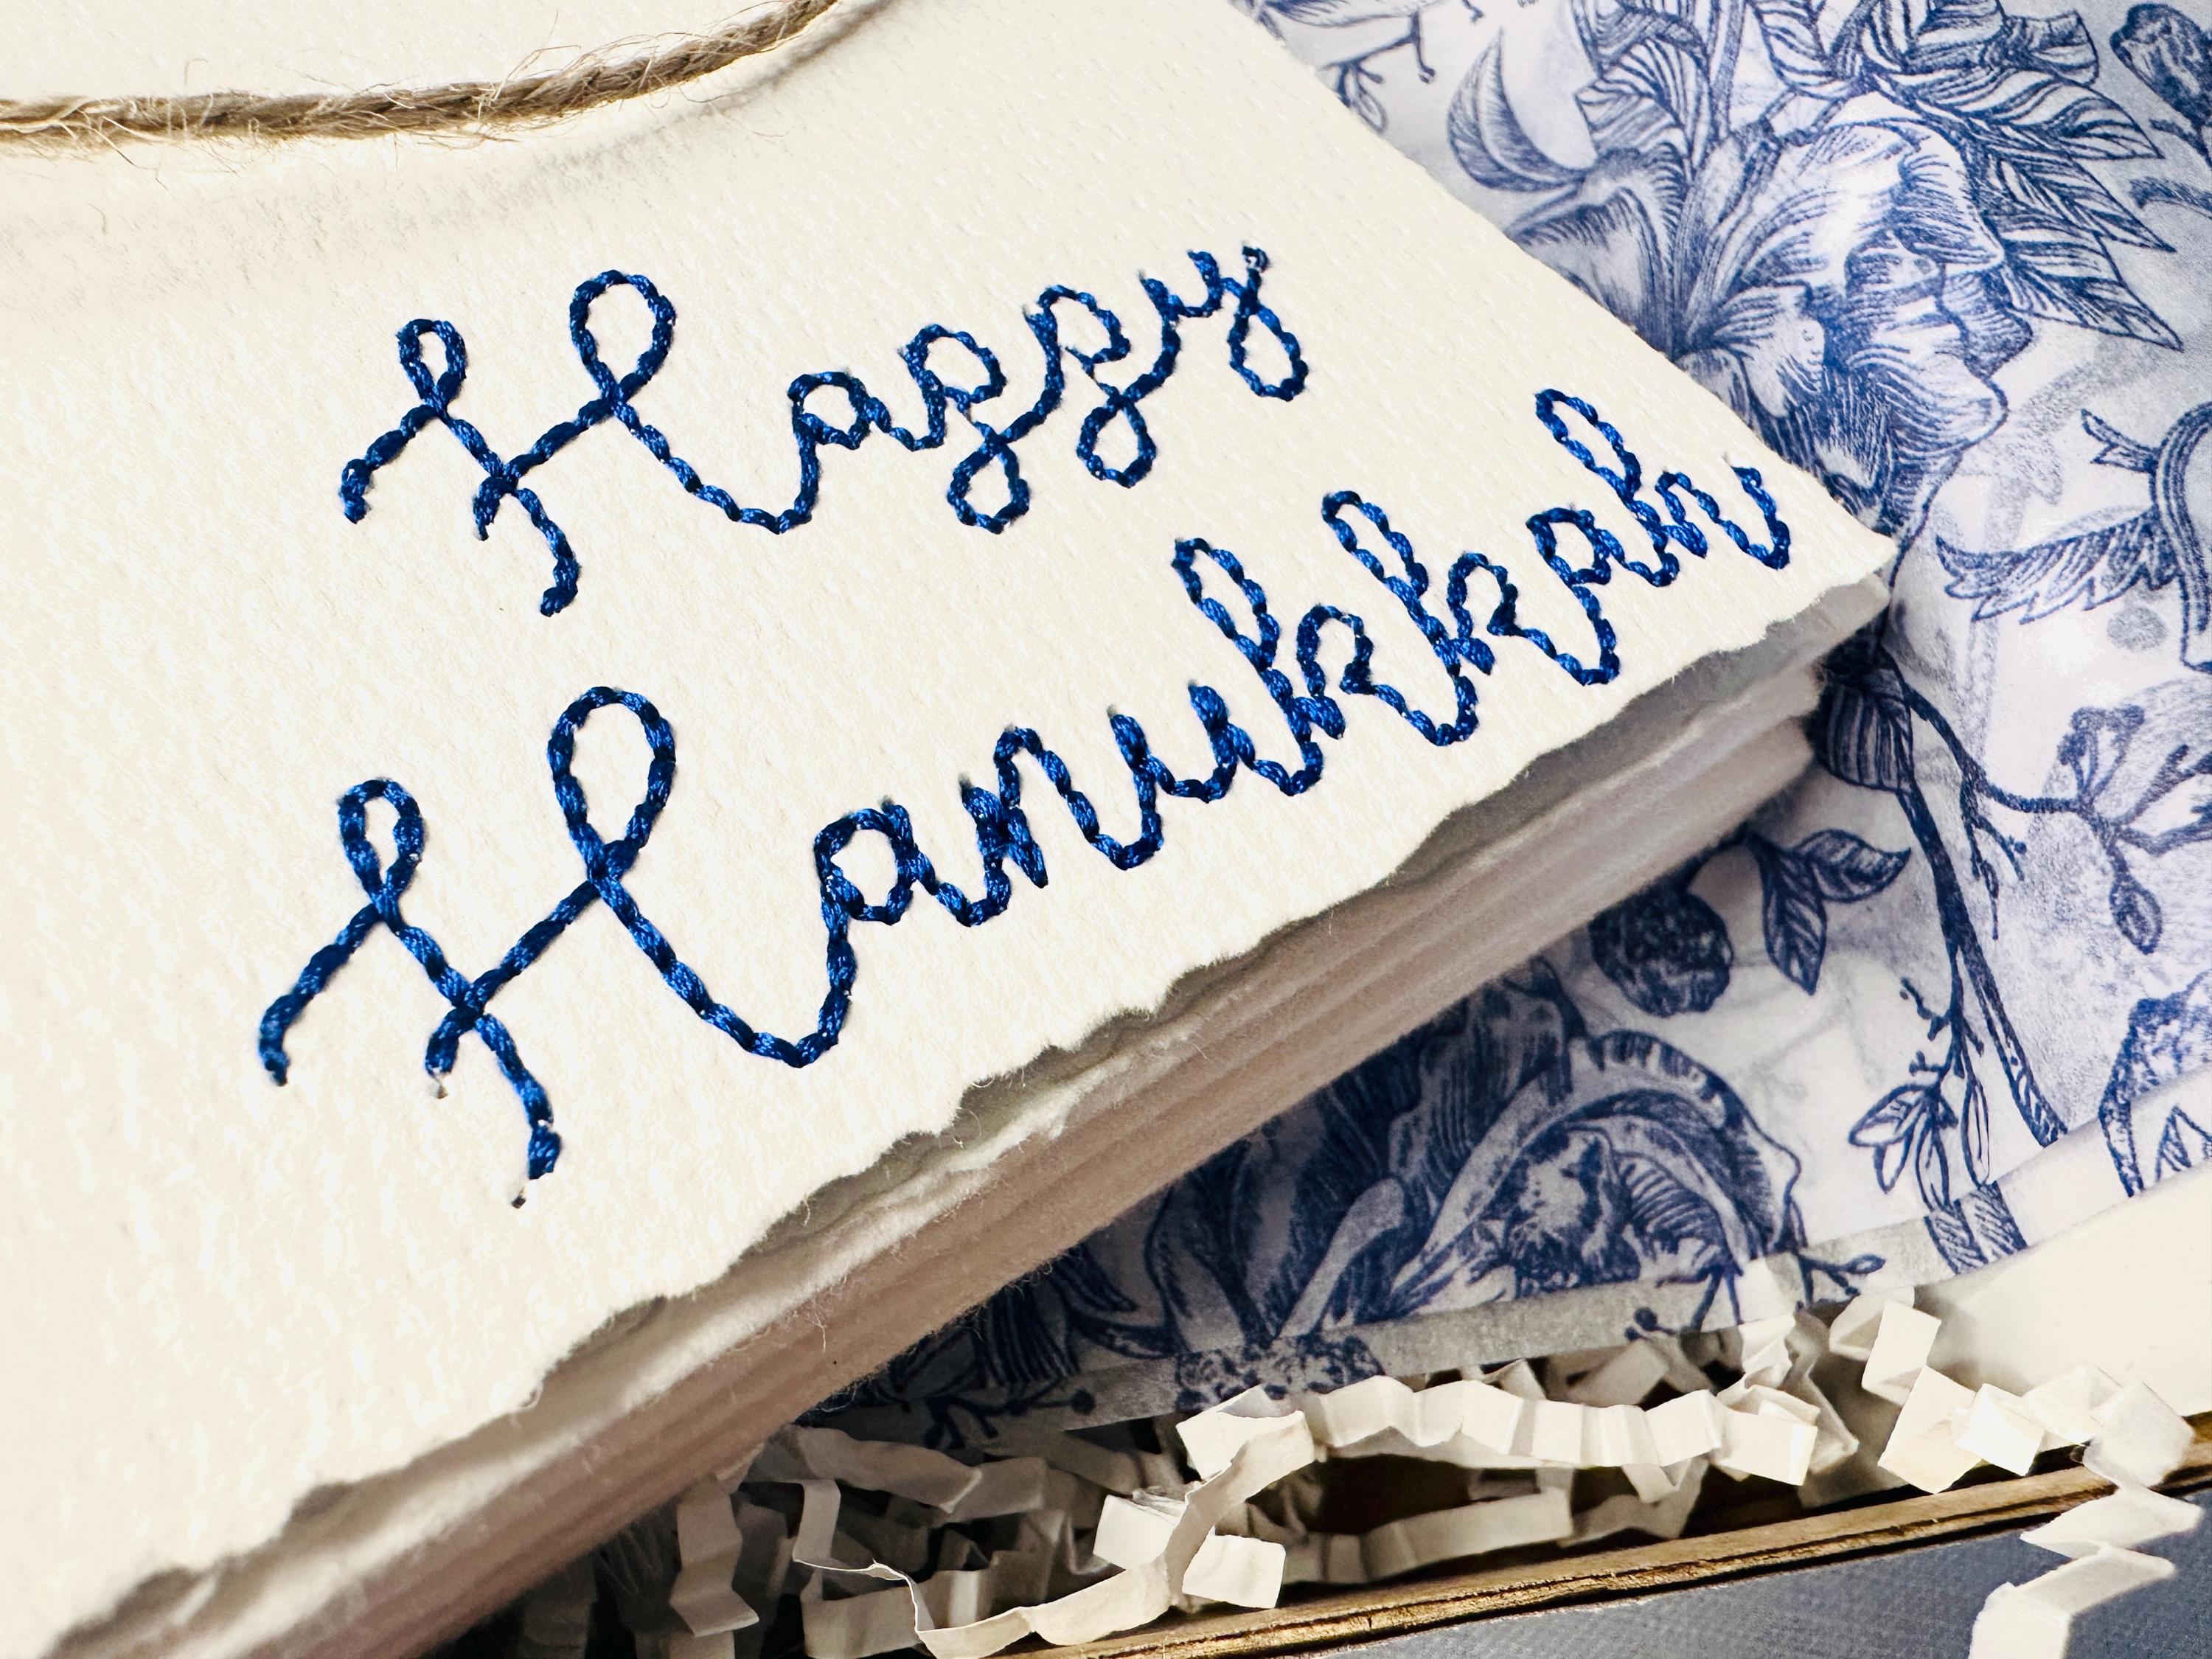 Happy
Hanukkah